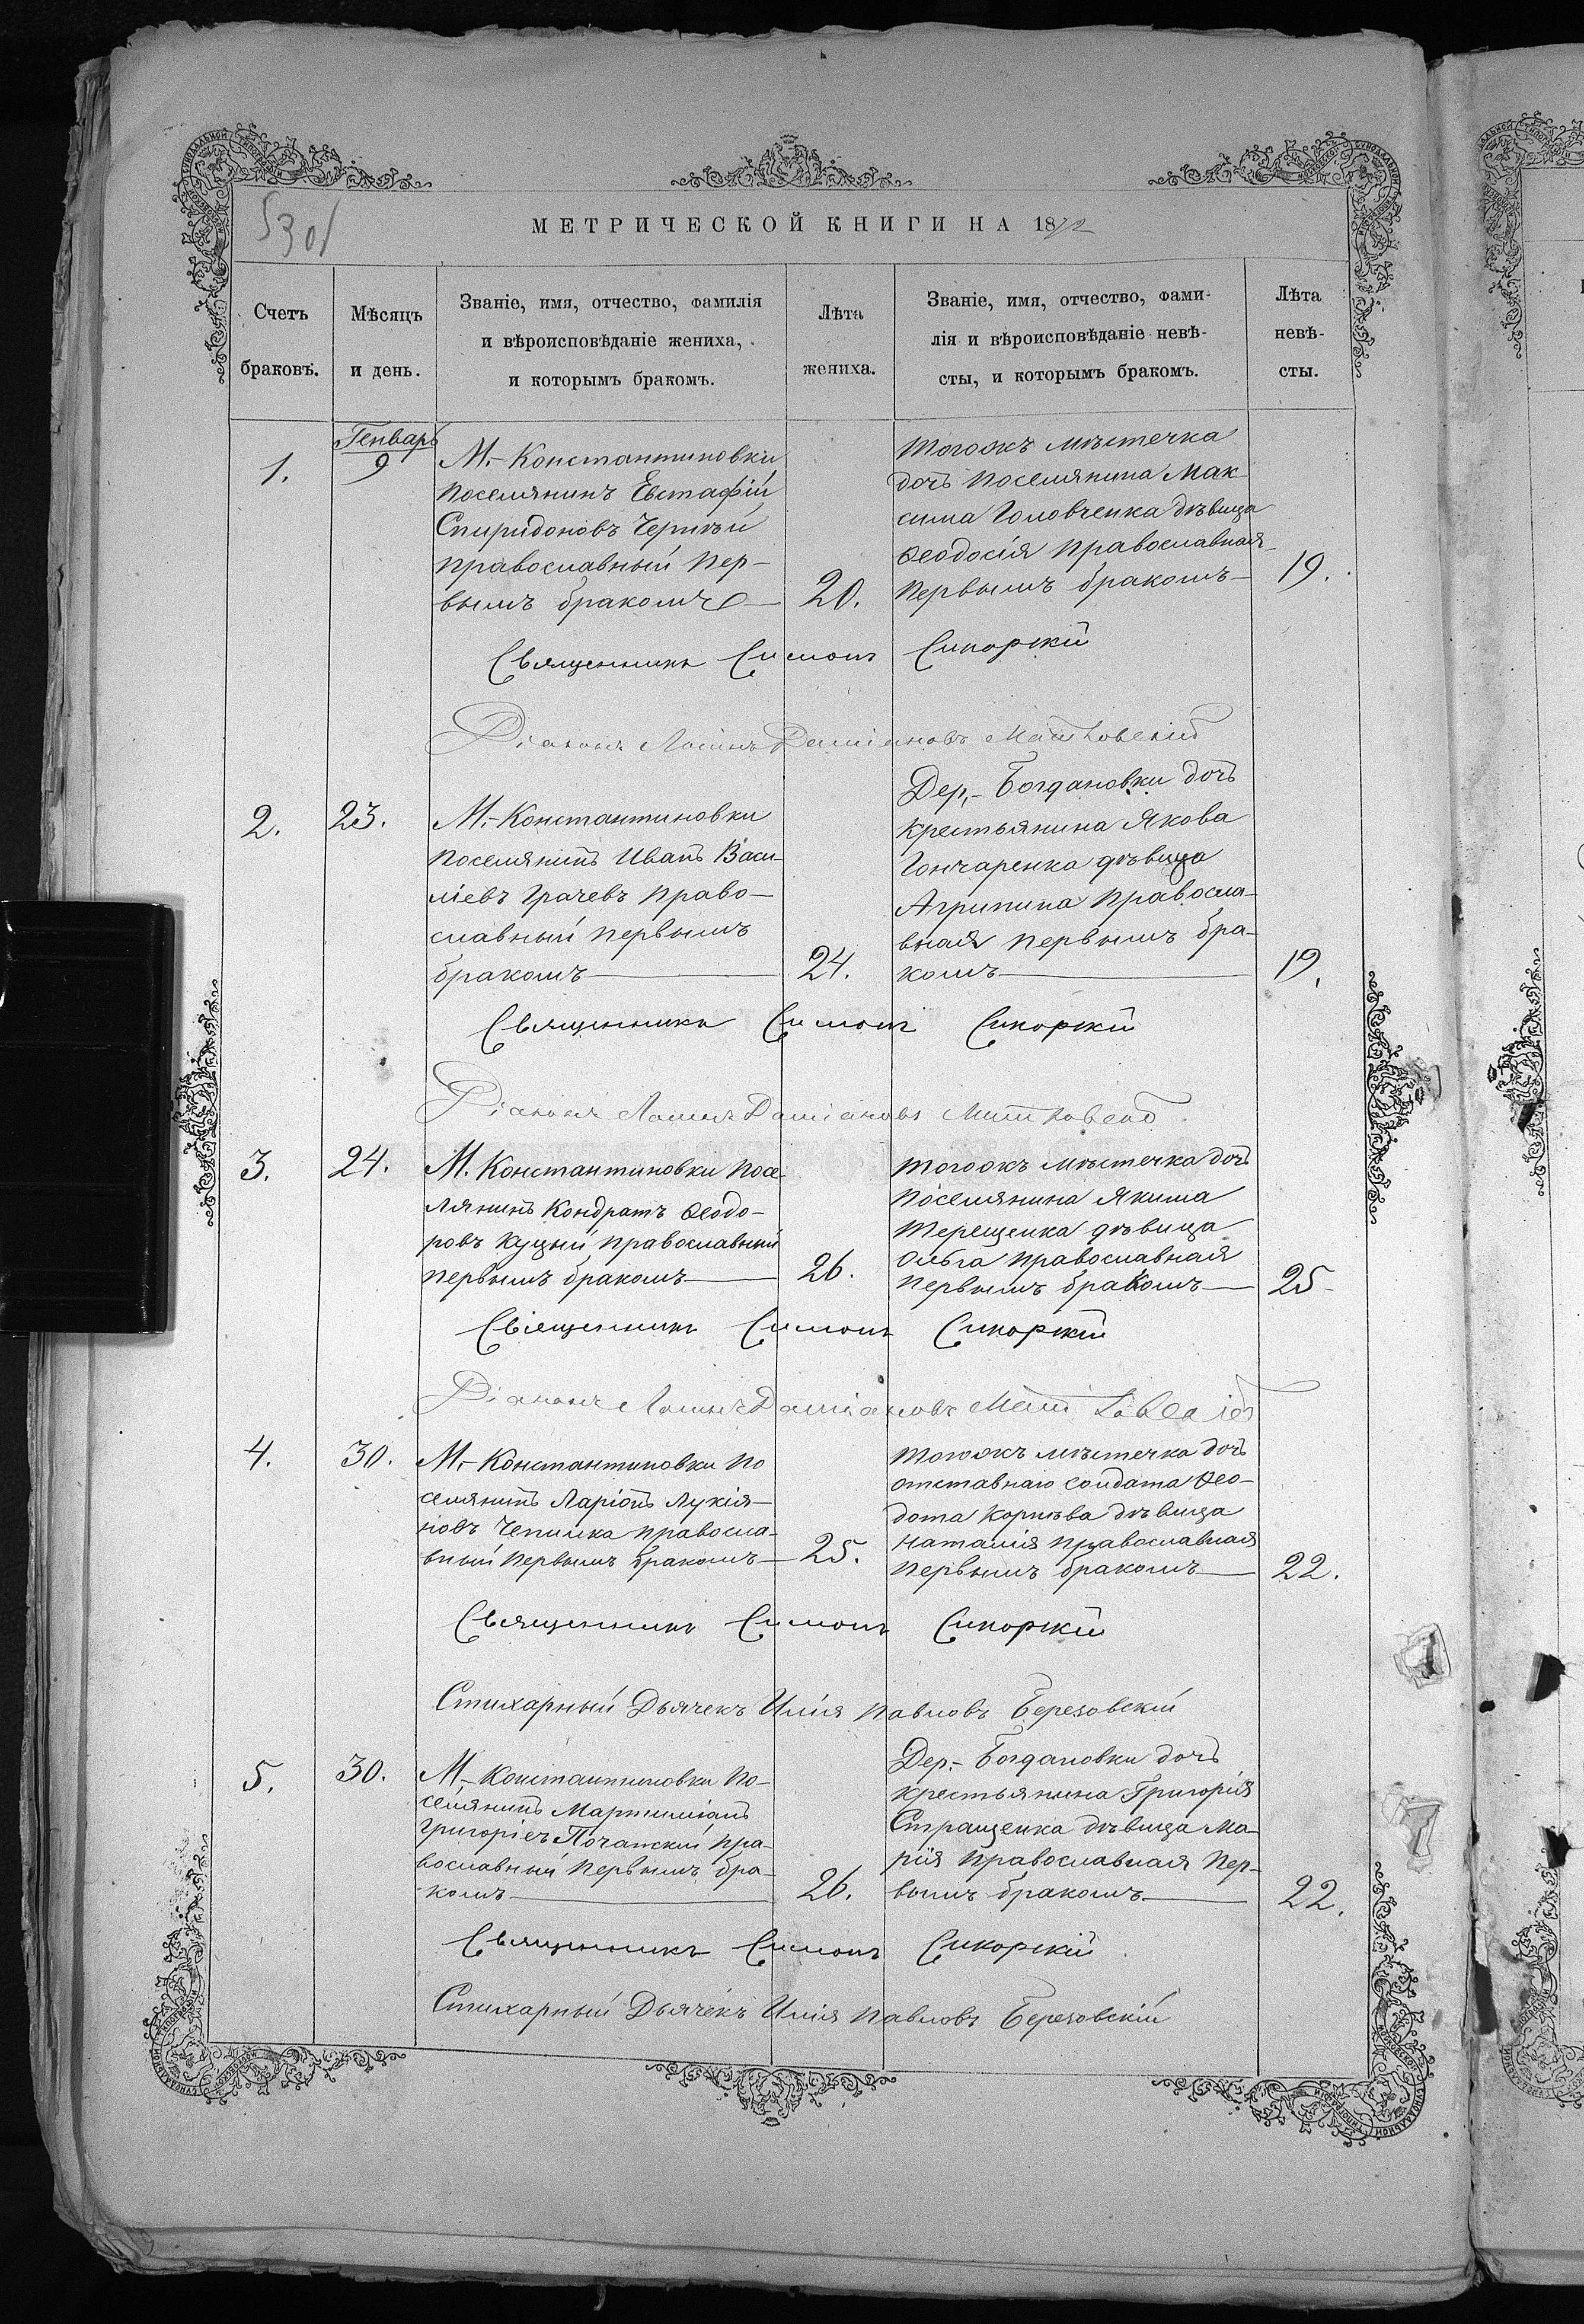 5301
МЕТРИЧЕСКОЙ КНИГИ НА 1872
Счетъ браковъ.
Мѣсяцъ и день.
Званіе, имя, отчество, фамилія
и вѣроисповѣданіе жениха,
и которымъ бракомъ.
Лѣта жениха.
Званіе, имя, отчество, фами-
лія и вѣроисповѣданіе невѣ-
сты, и которымъ бракомъ.
Лѣта невѣ-
сты.
Генварь
1.
9
М.- Константиновки
поселянинъ Евстафій
Спиридоновъ Чернѣй
православный пер-
вымъ бракомъ
20.
тогожъ мѣстечка
дочь поселянина Мак-
сима Головченка дѣвица
Ѳеодосія православная
первымъ бракомъ
19.
Священникъ Симонъ Сикорскій
Діаконъ Данiановъ
2.
23.
М.- Константиновки
поселянинъ Иванъ Васи-
ліевъ Грачевъ право-
славный первымъ
бракомъ
24.
Дер.- Богдановки дочь
крестьянина Якова
Гончаренка дѣвица
Агрипина правосла-
вная первымъ бра-
комъ
19.
Священникъ Симонъ Сикорскій
Діаконъ Даміановъ
3.
24.
М. Константиновки посе-
лянинъ Кондратъ Ѳеодо-
ровъ Куцый православный
первымъ бракомъ
26.
тогожъ мѣстечка дочь
поселянина Якима
Терещенка дѣвица
Ольга православная
первымъ бракомъ
25
Священникъ Симонъ Сикорскій
Діаконъ Даміановъ
4.
30.
М.- Константиновки по
селянинъ Ларіонъ Лукія-
новъ Чепилка правосла-
вный первымъ бракомъ
25.
тогожъ мѣстечка дочь
отставнаго солдата Ѳео-
дота Корнѣва дѣвица
Наталія православная
первымъ бракомъ
22.
Священникъ Симонъ Сикорскій
Стихарный Дьячекъ Илія Павловъ Березовскій
5.
30.
М.- Константиновки по-
селянинъ Мартиніанъ
Григоріев Почапскій пра-
вославный первымъ бра-
комъ
26.
Дер.- Богдановки дочь
крестьянина Григорія
Стращенка дѣвица Ма-
рія православная пер-
вымъ бракомъ
22.
Священникъ Симонъ Сикорскій
Стихарный Дьячекъ Илія Павловъ Березовскій